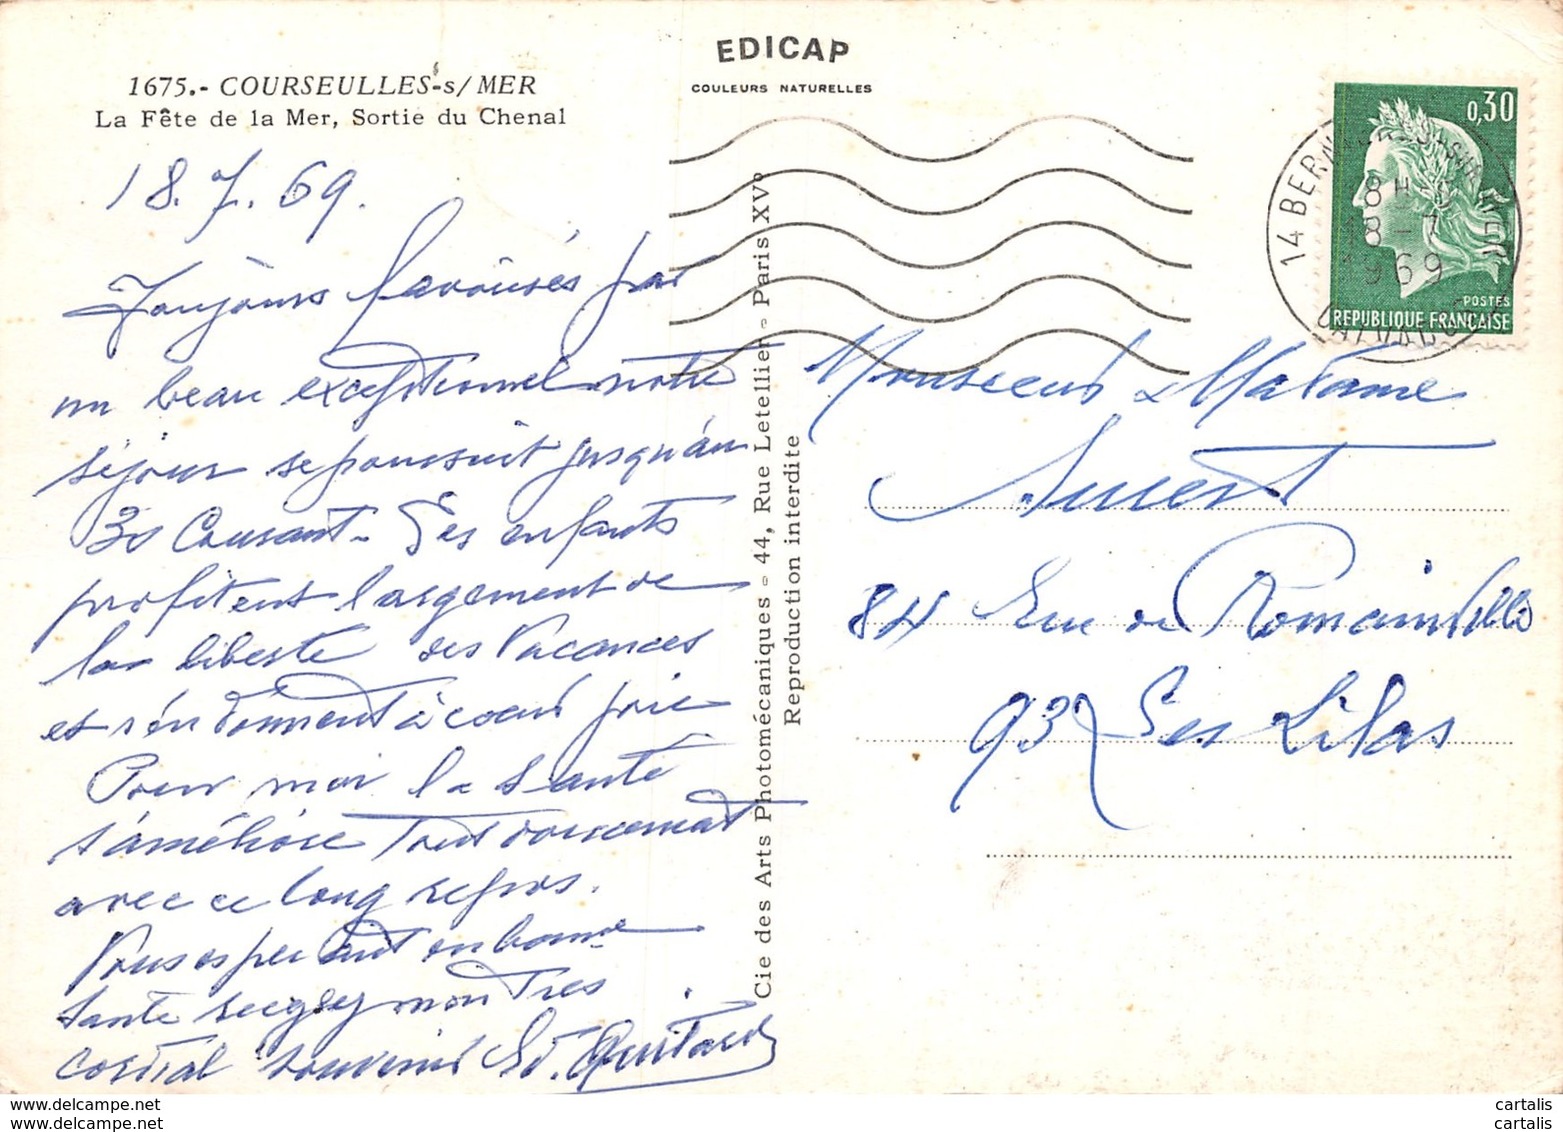 EDICAP
COULEURS NATURELLES
1675.- COURSEULLES-s/MER
La Fête de la Mer, Sortie du Chenal
18.7.69.
Toujours favorisés par
un beau exceptionnel notre
séjour se poursuit jusqu'au
30 Courant - Les enfants
profitent largement de
la liberté des Vacances
et s'en donnent à coeur joie
Pour moi la Santé
s'améliore Tout doucement
avec ce long repos.
Vous espérant en bonne
Santé mon Tres
cordial souvenir Ed. Quitard
Cie des Arts Photomécaniques - 44, Rue Letellier - Paris XVº
Reproduction interdite
0,30
POSTES
REPUBLIQUE FRANÇAISE
14 BERNIERES-SUR-MER
8H
18-7
1969
CALVADOS
Monsieur & Madame
84 Rue de Romainville
93 Les Lilas
www.delcampe.net
cartalis
cartalis